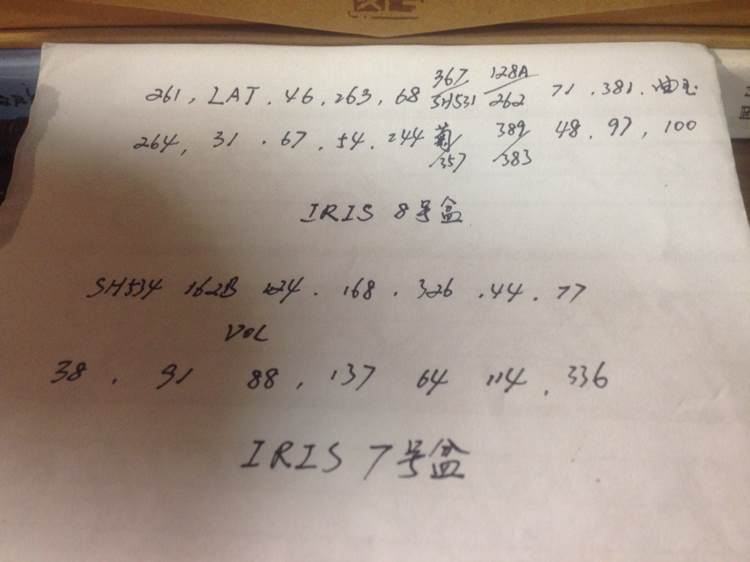 261, LAT. 46. 263, 68 367/SH531 128A/262 71. 381. 曲玉
264, 31. 67. 54. 244 菊/357 389/383 48. 97, 100
IRIS 8号盆
SH534 162B 124. 168. 326. 44. 77
VOL
38. 91 88, 137 64 114. 336
IRIS 7号盆